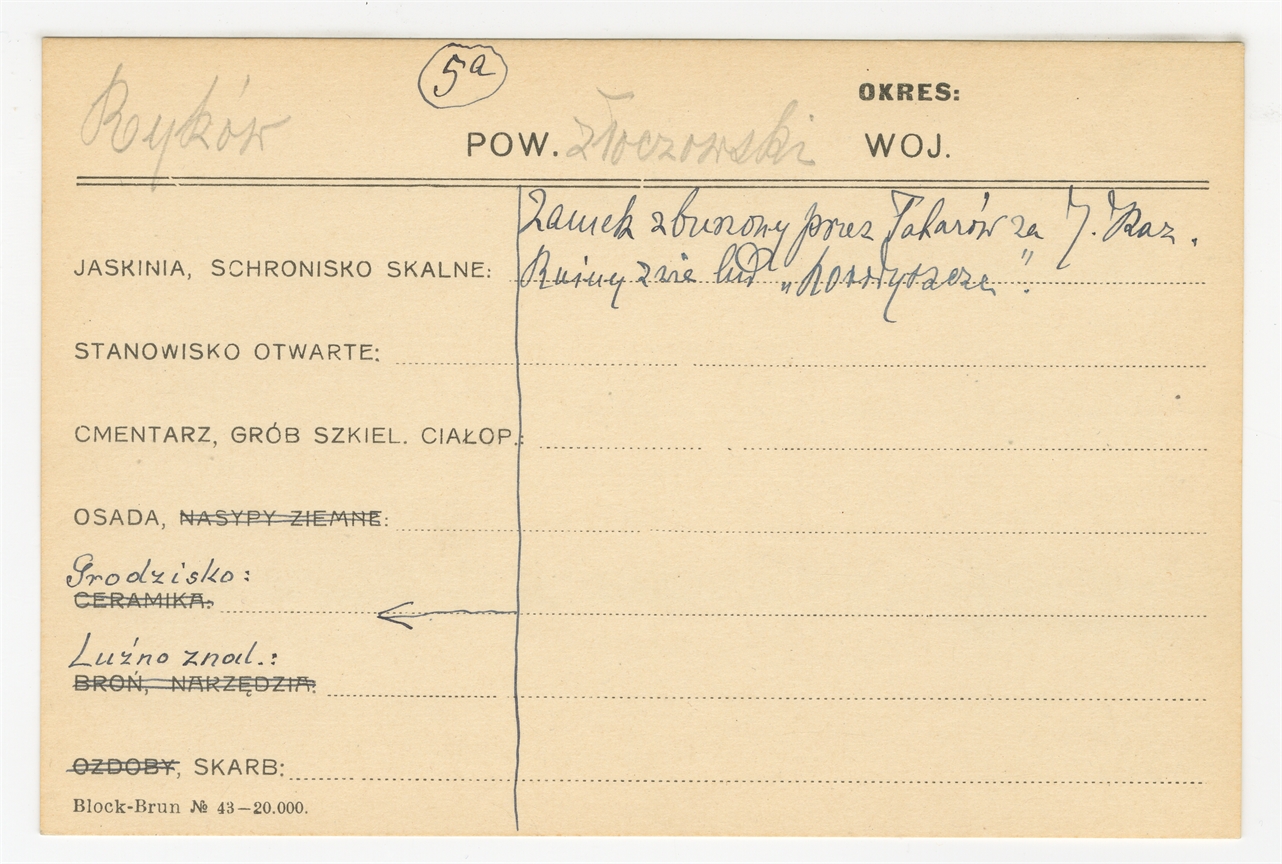 5a
OKRES:
Ryków POW. złoczowski WOJ.
Zamek zburzony przez Tatarów za J. Kaz.
JASKINIA, SCHRONISKO SKALNE: Ruiny zwie lud
STANOWISKO OTWARTE:
CMENTARZ, GRÓB SZKIEL. CIAŁOP.:
OSADA, NASYPY ZIEMNE:
Grodzisko:
CERAMIKA:
Luźno znal.:
BROŃ, NARZĘDZIA:
OZDOBY, SKARB:
Block-Brun № 43—20.000.